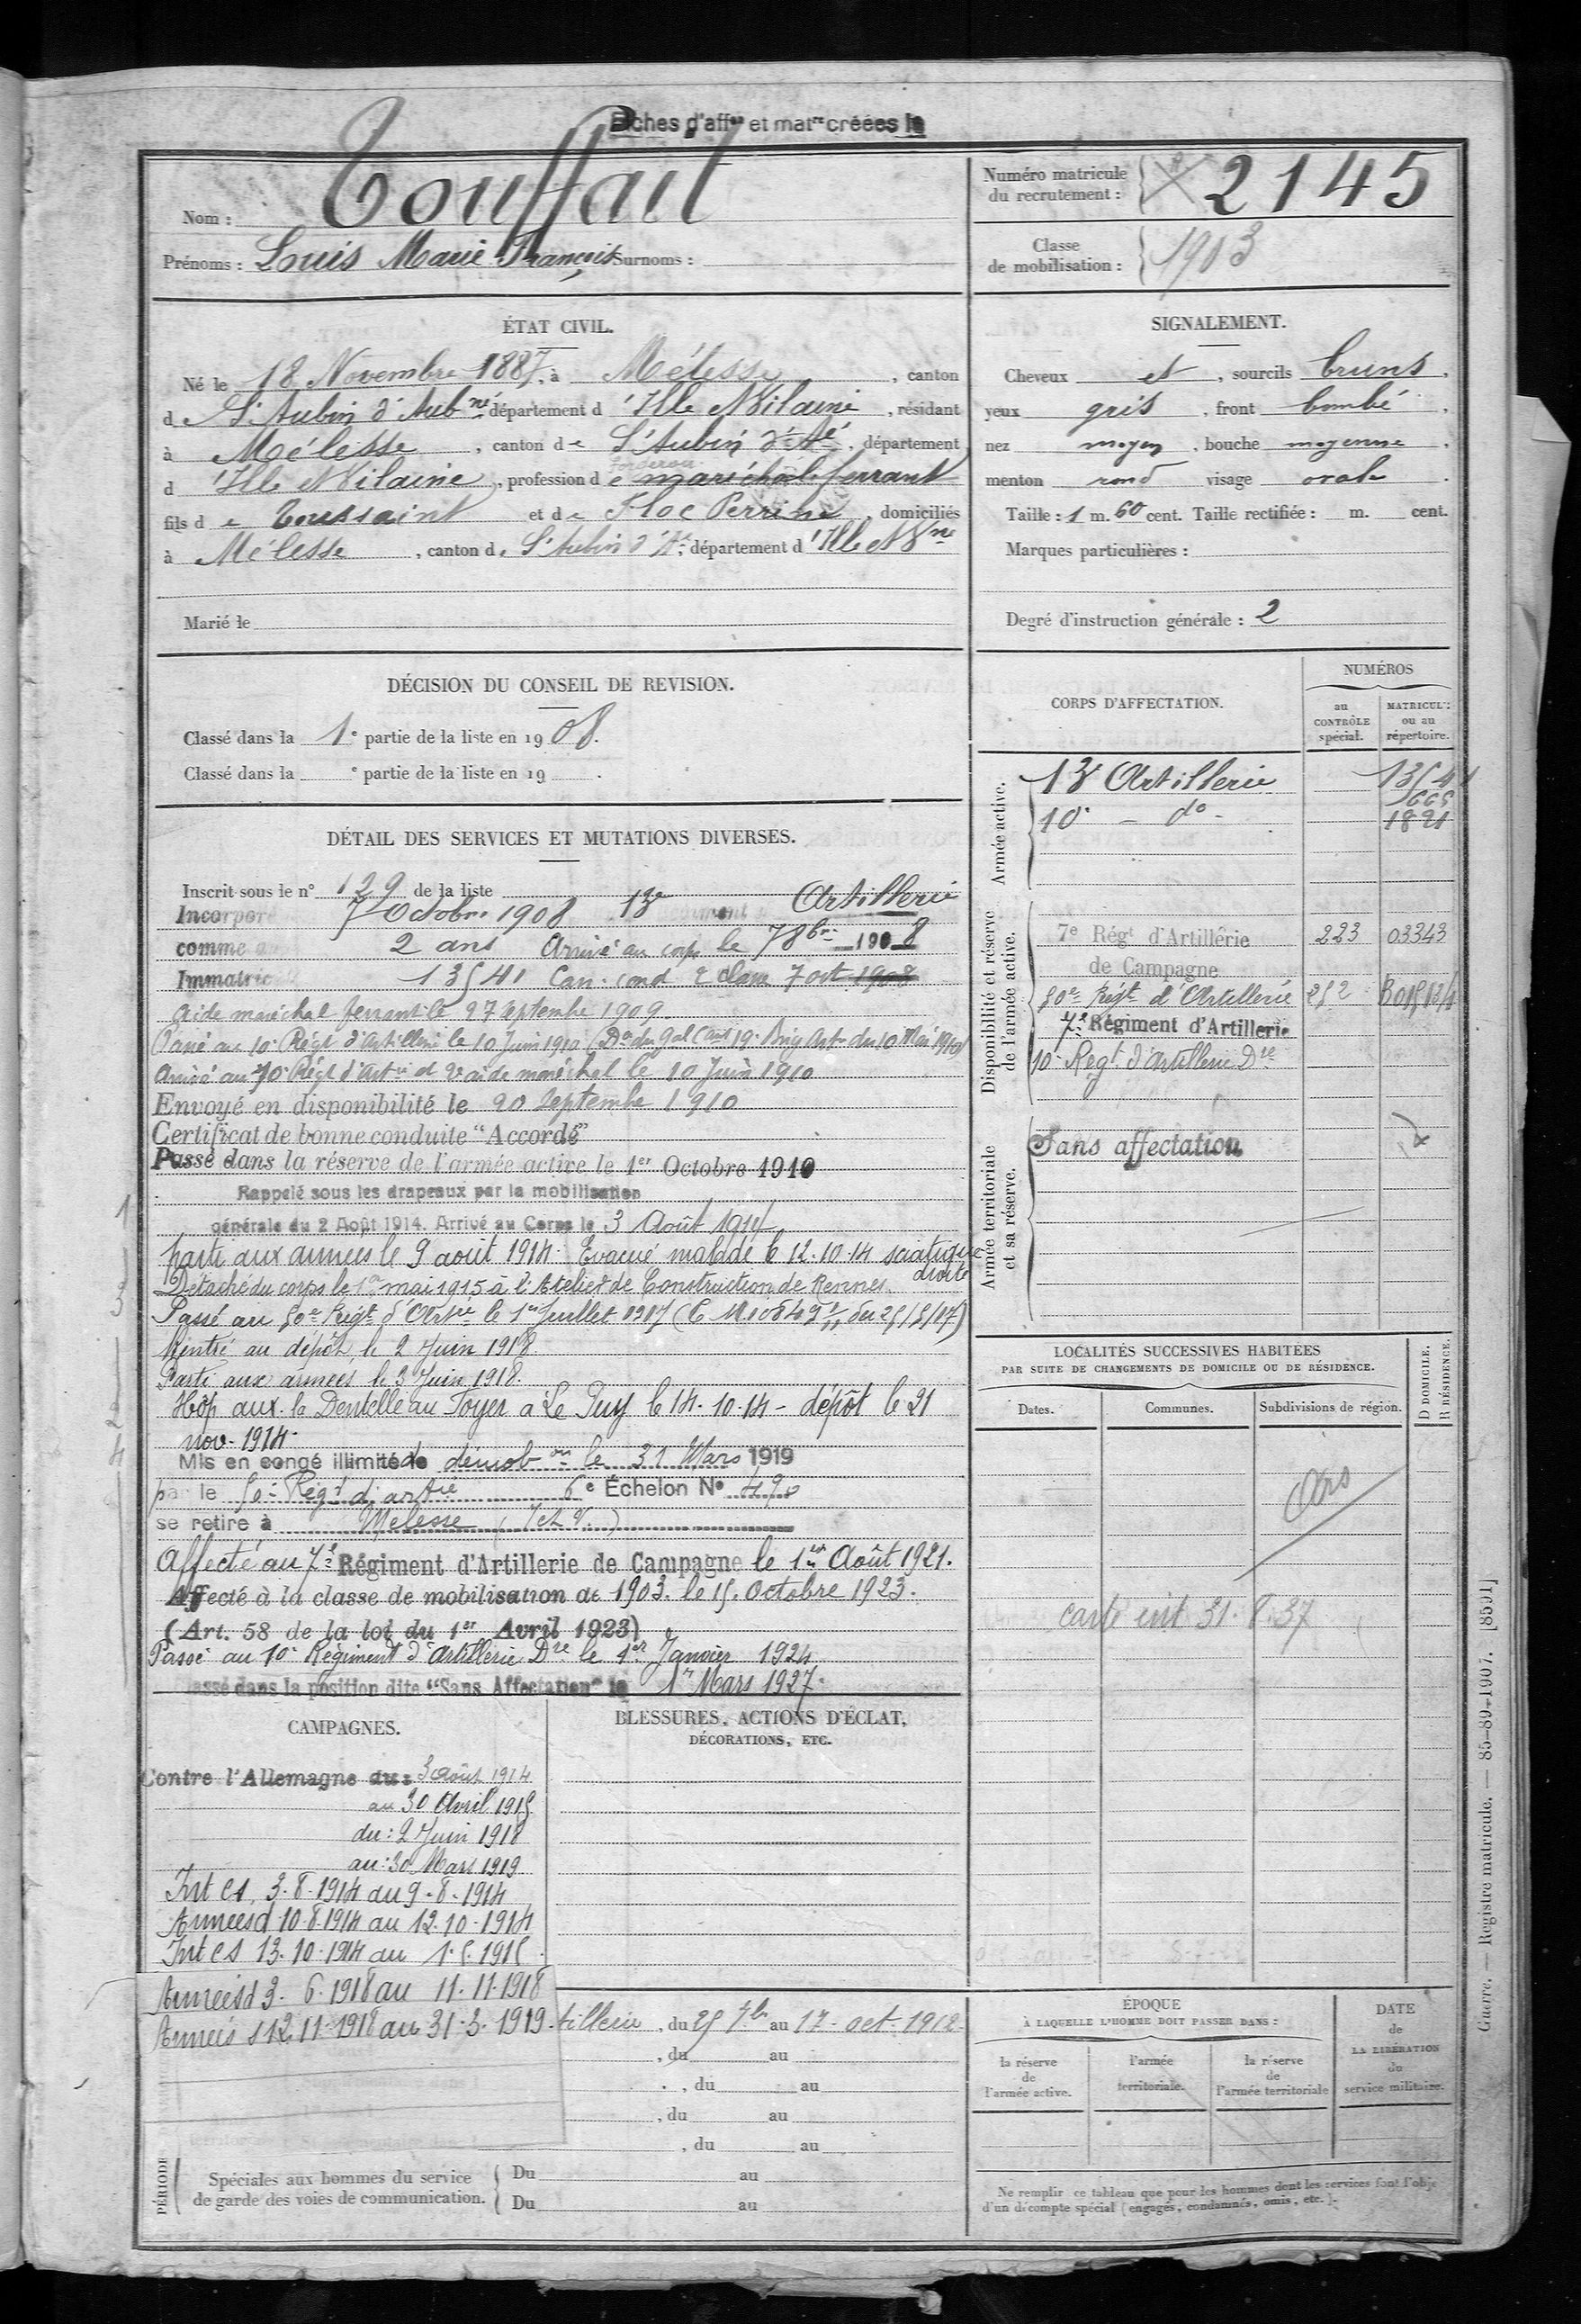 Fiches d'affon et matre créées le
Nom : Touffait
Prénoms : Louis Marie François Surnoms :
Numéro matricule du recrutement : 2145
Classe de mobilisation : 1903
ÉTAT CIVIL.
Né le 18 Novembre 1887, à Mélesse, canton
d St Aubin d'Aubné département d'Ille & Vilaine, résidant
à Mélesse, canton de St Aubin d'Aé, département
d'Ille & Vilaine, profession de forgeron maréchal ferrant
fils de Toussaint et de Floc Perrine, domiciliés
à Mélesse, canton de St Aubin d'Aé département d'Ille & Vne
Marié le
SIGNALEMENT.
Cheveux et, sourcils bruns,
yeux gris, front bombé,
nez moyen, bouche moyenne,
menton rond visage ovale.
Taille : 1 m. 60 cent. Taille rectifiée : m. cent.
Marques particulières :
Degré d'instruction générale : 2
DÉCISION DU CONSEIL DE REVISION.
Classé dans la 1e partie de la liste en 1908.
Classé dans la e partie de la liste en 19 .
DÉTAIL DES SERVICES ET MUTATIONS DIVERSES.
Inscrit sous le n° 129 de la liste
Incorporé 7 Octobre 1908 13e Artillerie
comme 2 ans Arrivé au corps le 7 8bre 1908
Immatric 13541 Can. cond 2 classe 7 oct 1908
Aide maréchal ferrant le 27 Septembre 1909
Passé au 10e Régt d'Artillerie le 10 Juin 1910 (Don du Gal Cant 19e Brig Art du 10 Mai 1910)
Arrivé au 10e Régt d'Artie et 2e aide maréchal le 10 Juin 1910
Envoyé en disponibilité le 20 Septembre 1910
Certificat de bonne conduite "Accordé"
Passé dans la réserve de l'armée active le 1er Octobre 1910
Rappelé sous les drapeaux par la mobilisation
générale du 2 Août 1914. Arrivé au Corps le 3 Août 1914
parti aux armées le 9 août 1914. Evacué malade le 12.10.14 sciatique droite
Détaché du corps le 1er mai 1915 à l'Atelier de Construction de Rennes.
Passé au 50e Régt d'Artie le 1er Juillet 1917
Rentré au dépôt le 2 Juin 1918
Parti aux armées le 3 Juin 1918.
Hôp aux. la Dentelle au Foyer à Le Puy le 14.10.14 - dépôt le 21
nov. 1914.
Mis en congé illimité de démobon le 31 Mars 1919
par le 50e Régt d'artie 6e Échelon N° 490
se retire à Melesse (I et V.)
Affecté au 7e Régiment d'Artillerie de Campagne le 1er Août 1921.
Affecté à la classe de mobilisation de 1903. le 15. Octobre 1923.
(Art. 58 de la loi du 1er Avril 1923)
Passé au 10e Régiment d'Artillerie Dre le 1er Janvier 1924
Classé dans la position dite "Sans Affectation" le 1er Mars 1927.
CORPS D'AFFECTATION.
NUMÉROS
au CONTRÔLE spécial.
MATRICULE ou au répertoire.
Armée active.
13e Artillerie 13541
10e - do - 1821
Disponibilité et réserve de l'armée active.
7e Régt d'Artillerie 223 03343
de Campagne
50e Régt d'Artillerie 252
7e Régiment d'Artillerie
10e Regt d'artillerie Dre
Armée territoriale et sa réserve.
Sans affectation
LOCALITÉS SUCCESSIVES HABITÉES
PAR SUITE DE CHANGEMENTS DE DOMICILE OU DE RÉSIDENCE.
Dates. Communes. Subdivisions de région.
D DOMICILE.
R RÉSIDENCE.
CAMPAGNES.
Contre l'Allemagne du : 3 Août 1914
au 30 Avril 1915
du : 2 Juin 1918
au : 30 Mars 1919
Int cs 3.8.1914 au 9.8.1914
Armées d 10.8.1914 au 12.10.1914
Int cs 13.10.1914 au 1.5.1915
Armées d 3.6.1918 au 11.11.1918
Armées s 12.11.1918 au 31.3.1919
BLESSURES, ACTIONS D'ÉCLAT,
DÉCORATIONS, ETC.
tillerie, du 25 7bre au 17 oct. 1912
, du au
, du au
, du au
, du au
PÉRIODE
Spéciales aux hommes du service
de garde des voies de communication.
Du au
Du au
ÉPOQUE
À LAQUELLE L'HOMME DOIT PASSER DANS :
la réserve de l'armée active.
l'armée territoriale.
la réserve de l'armée territoriale
DATE de LA LIBÉRATION du service militaire.
Ne remplir ce tableau que pour les hommes dont les services font l'obje
d'un décompte spécial (engagés, condamnés, omis, etc.).
Guerre. — Registre matricule. — 85-89-1907. [8591]